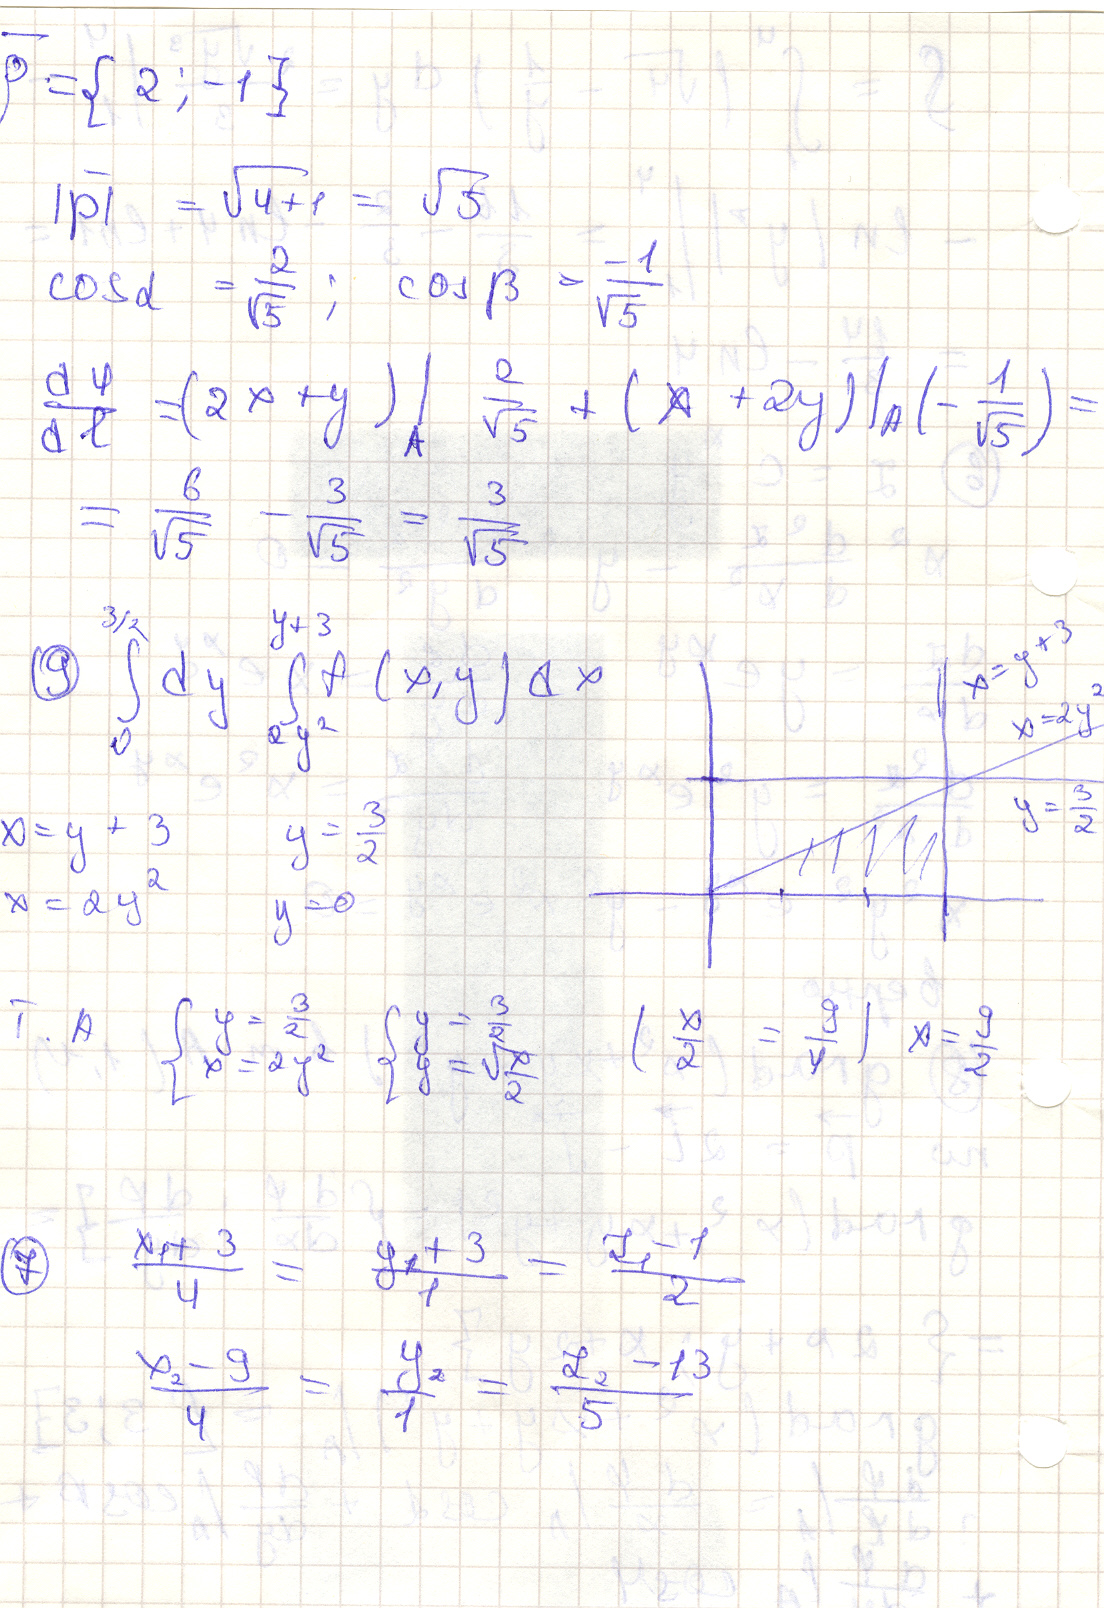 p̄ = { 2 ; -1 }
|p̄| = √4+1 = √5
cosα = 2/√5 ; cosβ = -1/√5
dφ/dl = (2x + y)|A 2/√5 + (x + 2y)|A (- 1/√5) =
= 6/√5 - 3/√5 = 3/√5
⑨ ∫₀^{3/2} dy ∫_{2y²}^{y+3} f (x, y) dx
x = y + 3
x = 2y²
y = 3/2
x = y + 3 y = 3/2
x = 2y² y = 0
T. A { y = 3/2 x = 2y² { y = 3/2 y = √x/2 ( x/2 = 9/4 ) x = 9/2
⑦ x₁ + 3/4 = y₁ + 3/1 = z₁ - 1/2
x₂ - 9/4 = y₂/1 = z₂ - 13/5